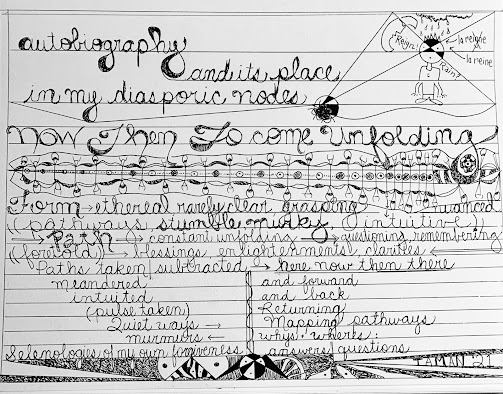 autobiography
and its place
in my diasporic nodes
Reign!
la reigne
la reine
Rain!
Now Then To come Unfolding
Form → ethereal rarely clear grasping
nuanced
(pathways, stumble murky intuitive)
→ Path → constant unfolding → questioning, remembering
(foretold) → blessings, enlightenments, clarities ←
Paths taken subtracted → here now then there
meandered
intuited
(pulse taken)
Quiet ways →
murmurs ←
Selenologies of my own forgiveness
and forward
and back
Returning
Mapping pathways
whys: wheres:
answers questions
TAMAN '21